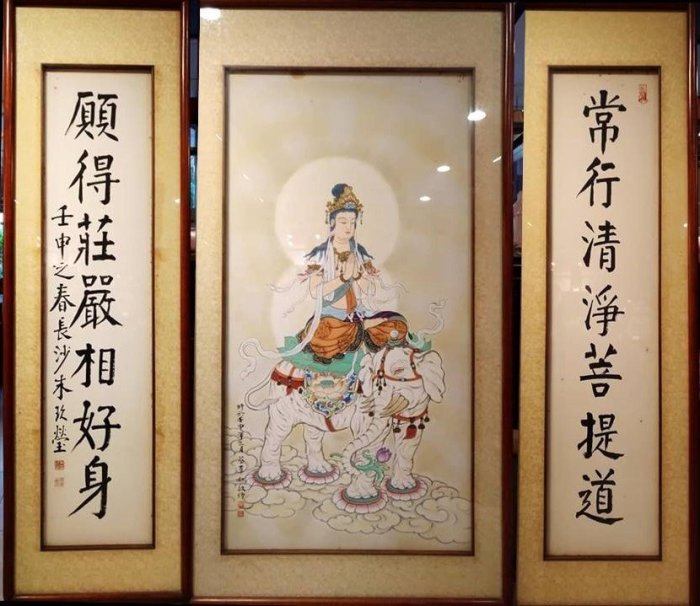 常行清淨菩提道
願得莊嚴相好身
壬申之春長沙朱玖瑩